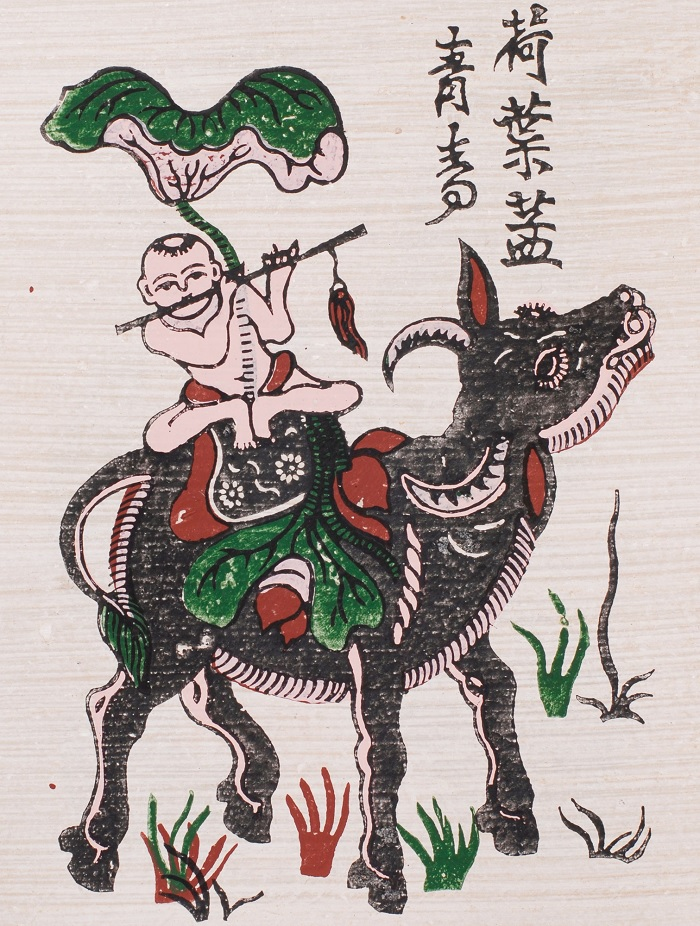 荷葉蓋
青青